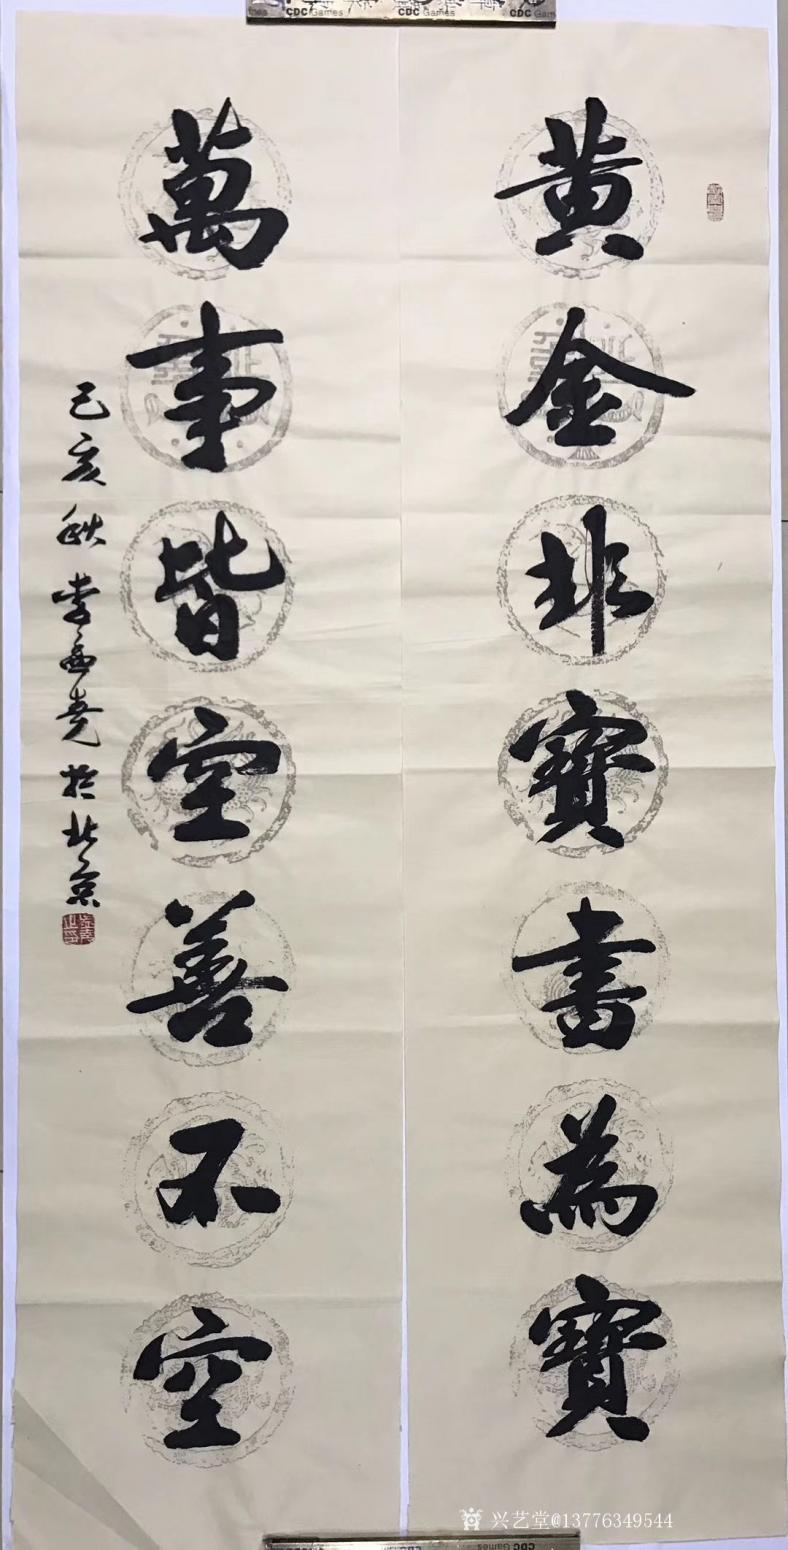 黄金非寶書為寶
萬事皆空善不空
己亥秋李孟堯於北京
兴艺堂@13776349544
CDC Games
CDC Games
CDC Games
CDC Games